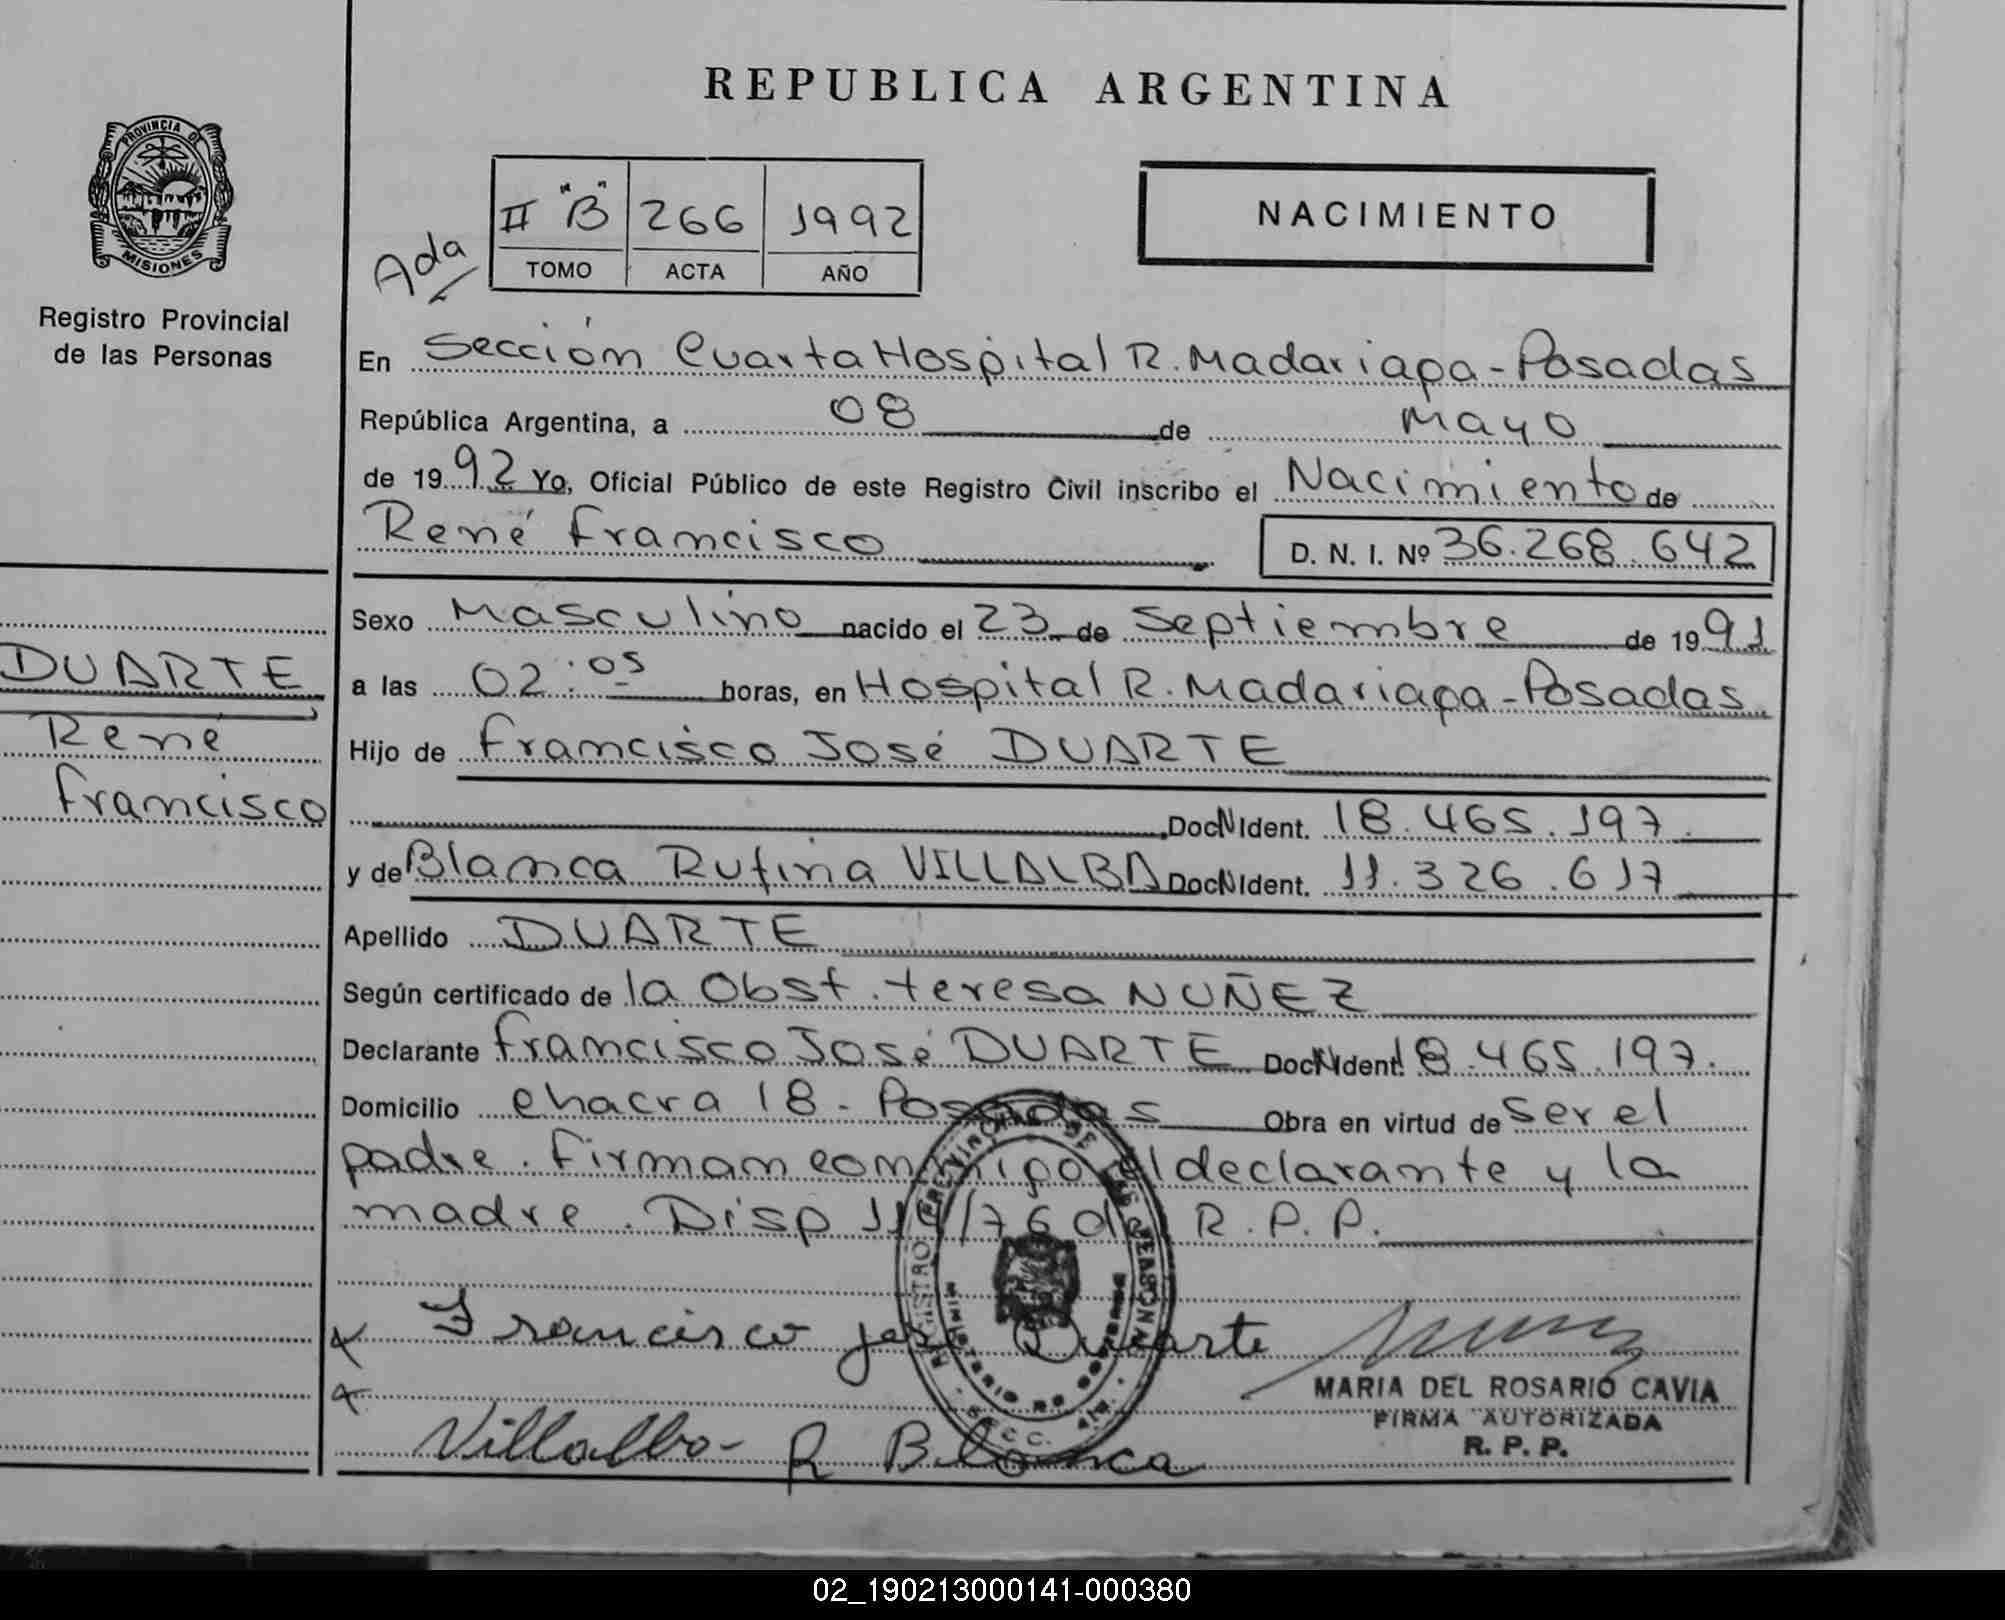 REPUBLICA ARGENTINA
PROVINCIA DE
MISIONES
Registro Provincial
de las Personas
Ada
II "B" 266 1992
TOMO ACTA AÑO
NACIMIENTO
En Sección Cuarta Hospital R. Madariaga - Posadas
República Argentina, a 08 de Mayo
de 1992 Yo, Oficial Público de este Registro Civil inscribo el Nacimiento de
René Francisco D. N. I. Nº 36.268.642
Sexo Masculino nacido el 23 de Septiembre de 1991
DUARTE
René
Francisco
a las 02:05 horas, en Hospital R. Madariaga - Posadas
Hijo de Francisco José DUARTE
Doc. N. Ident. 18.465.197.
y de Blanca Rufina VILLALBA Doc. N. Ident. 11.326.617
Apellido DUARTE
Según certificado de la Obst. teresa NUÑEZ
Declarante Francisco José DUARTE Doc. N. Ident. 18.465.197.
Domicilio chacra 18 - Posadas Obra en virtud de Ser el
padre. Firman conmigo el declarante y la
madre. Disp /76 del R.P.P.
Francisco jose Duarte
Villalba - R Blanca
MARIA DEL ROSARIO CAVIA
FIRMA AUTORIZADA
R. P. P.
REGISTRO PROVINCIAL DE LAS PERSONAS
MINISTERIO DE GOBIERNO
02_190213000141-000380